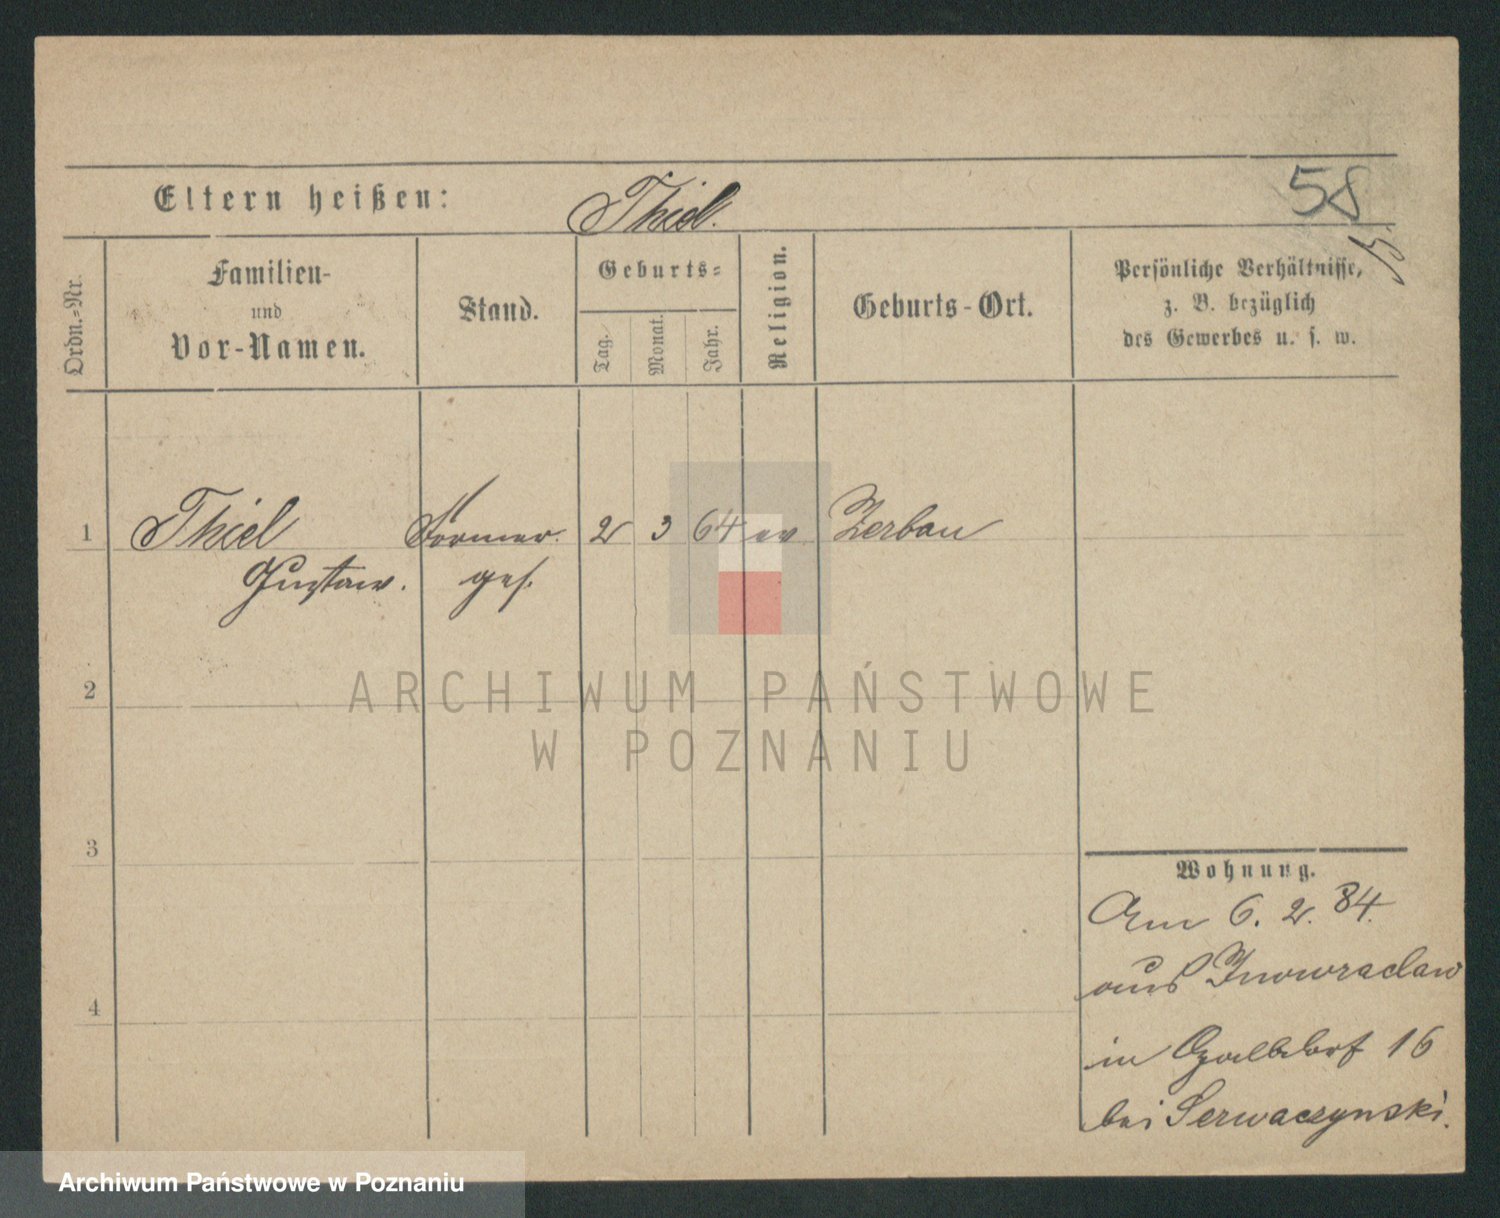 58
Eltern heißen: Thiel.
Ordn.-Nr.
Familien-
und
Vor-Namen.
Stand.
Geburts-
Tag.
Monat.
Jahr.
Religion.
Geburts-Ort.
Persönliche Verhältnisse,
z. B. bezüglich
des Gewerbes u. s. w.
1 Thiel Former 2 3 64 ev Zerbau
Gustav. ges.
2
3
4
Wohnung.
Am 6. 2. 84.
aus Inowraclaw
in 16
bei Serwaczynski.
ARCHIWUM PAŃSTWOWE
W POZNANIU
Archiwum Państwowe w Poznaniu